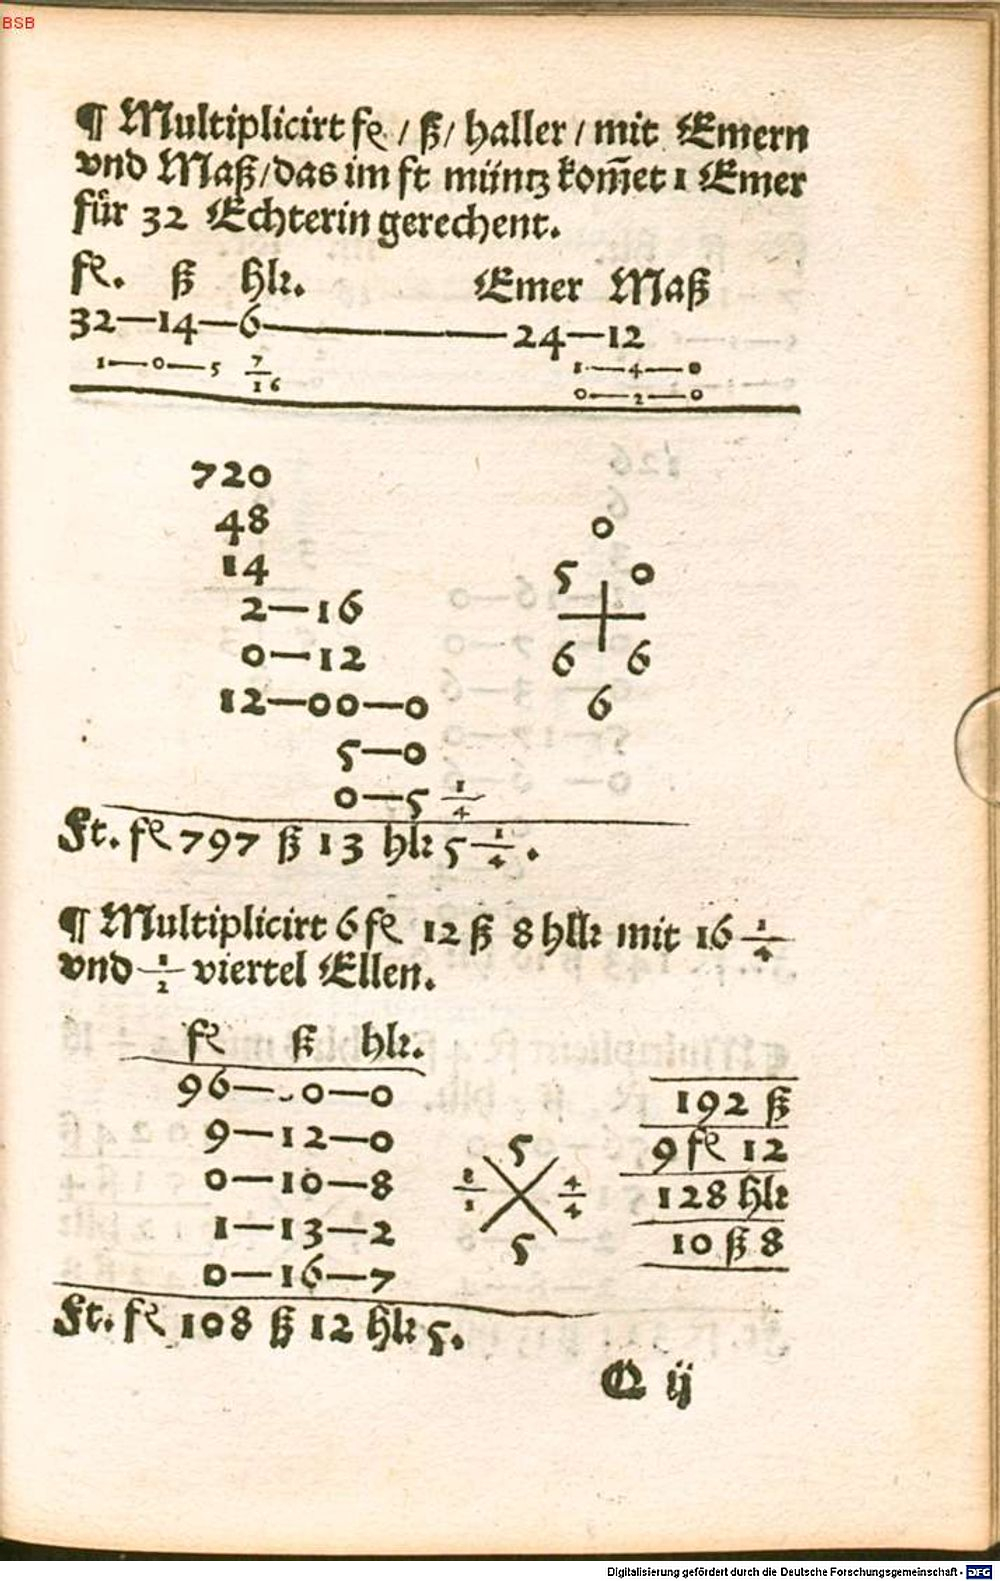 BSB
¶ Multiplicirt fl / ß / haller / mit Emern
vnd Maß/das im ft müntz kom̄et 1 Emer
fůr 32 Echterin gerechent.
fl. ß hlr. Emer Maß
32—14—6———24—12
1—0—5 7/16 1—4—0
0—2—0
720
48
14
2—16
0—12
12—00—0
5—0
0—5 1/4
0
5 0
6 6
6
Ft. fl 797 ß 13 hlr 5 1/4.
¶ Multiplicirt 6 fl 12 ß 8 hllr mit 16 1/4
vnd 1/2 viertel Ellen.
fl ß hlr.
96—0—0
9—12—0
0—10—8
1—13—2
0—16—7
5
4/4
5
192 ß
9 fl 12
128 hlr
10 ß 8
Ft. fl 108 ß 12 hlr 5.
Q ij
Digitalisierung gefördert durch die Deutsche Forschungsgemeinschaft - DFG